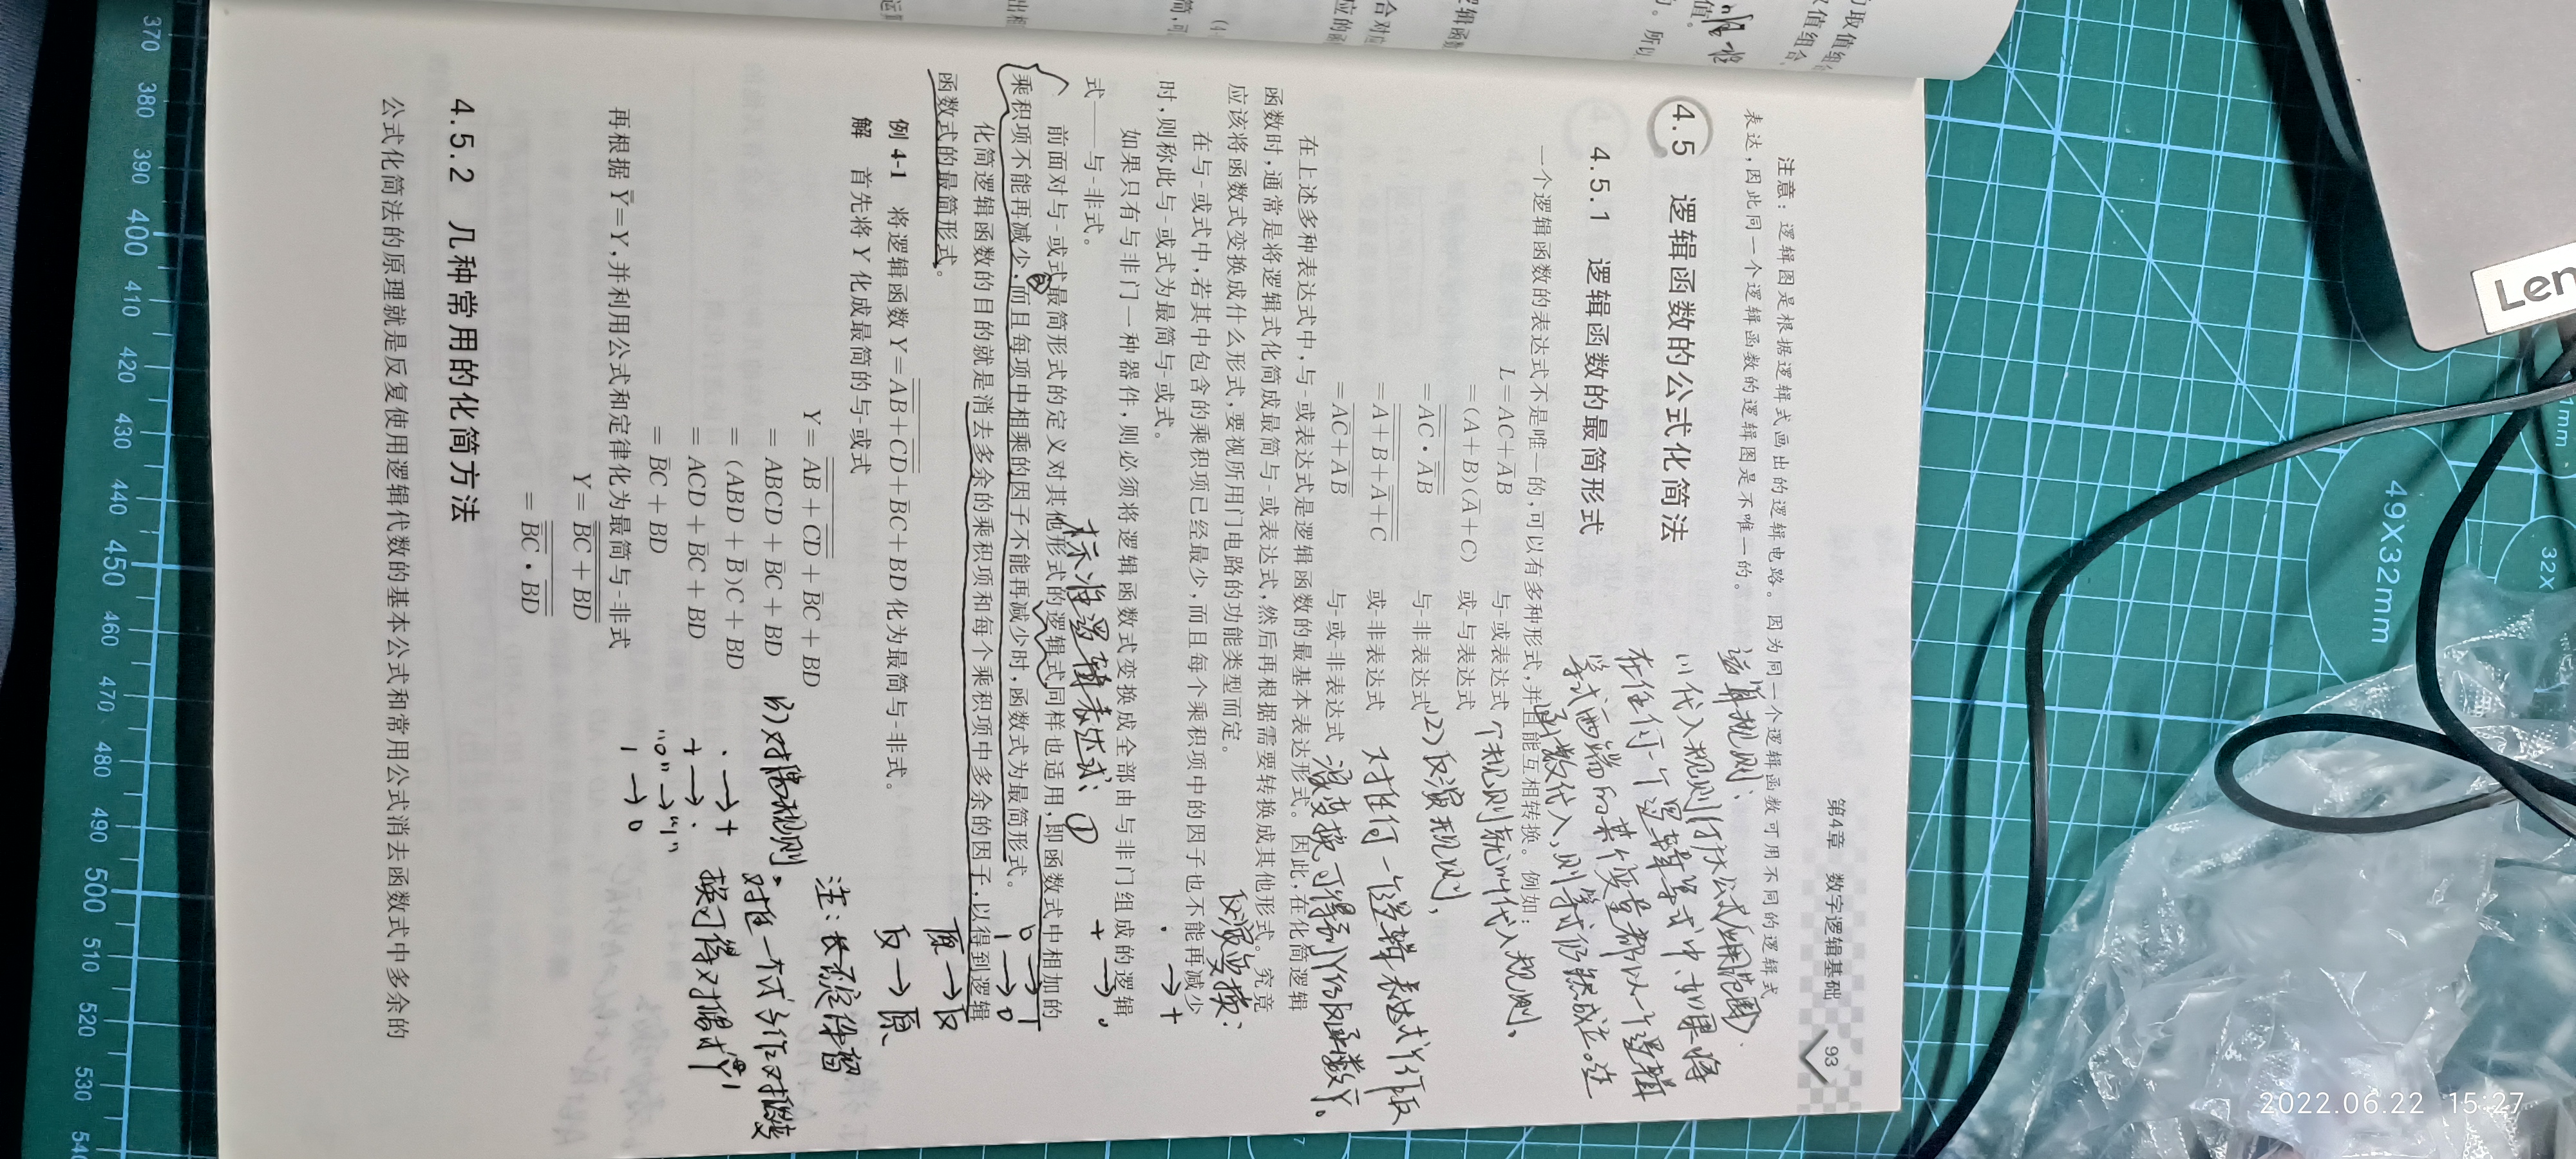 第4章 数字逻辑基础
93
注意：逻辑图是根据逻辑式画出的逻辑电路。因为同一个逻辑函数可用不同的逻辑式
表达，因此同一个逻辑函数的逻辑图是不唯一的。
运算规则：
4.5 逻辑函数的公式化简法
(1)代入规则(扩大公式应用范围)
在任何一个逻辑等式中，如果将
4.5.1 逻辑函数的最简形式
等式两端的某个变量都以一个逻辑
函数代入，则等式仍然成立。这
一个逻辑函数的表达式不是唯一的，可以有多种形式，并且能互相转换。例如：
个规则就叫代入规则、
L=AC+A̅B 与-或表达式
=(A+B)(A̅+C) 或-与表达式
(2)反演规则，
与-非表达式
或-非表达式
对任何一个逻辑表达式Y作反
与-或-非表达式
演变换，可得到Y的反函数Y̅。
在上述多种表达式中，与-或表达式是逻辑函数的最基本表达形式。因此，在化简逻辑
函数时，通常是将逻辑式化简成最简与-或表达式，然后再根据需要转换成其他形式。究竟
应该将函数式变换成什么形式，要视所用门电路的功能类型而定。
反演变换：
在与-或式中，若其中包含的乘积项已经最少，而且每个乘积项中的因子也不能再减少
时，则称此与-或式为最简与-或式。
· → +
如果只有与非门一种器件，则必须将逻辑函数式变换成全部由与非门组成的逻辑
式——与-非式。
+ → ·
标准逻辑表达式：①
前面对与-或式最简形式的定义对其他形式的逻辑式同样也适用，即函数式中相加的
乘积项不能再减少，而且每项中相乘的因子不能再减少时，函数式为最简形式。
②
0 → 1
1 → 0
化简逻辑函数的目的就是消去多余的乘积项和每个乘积项中多余的因子，以得到逻辑
函数式的最简形式。
原 → 反
反 → 原
例 4-1 将逻辑函数 Y=A̅B̅+C̅D̅+B̅C+BD 化为最简与-非式。
解 首先将 Y 化成最简的与-或式
注：长非号保留
=ABCD+B̅C+BD
=(ABD+B̅)C+BD
=ACD+B̅C+BD
=B̅C+BD
(3)对偶规则。
对任一个式Y作对偶变
换可得对偶式Y'
· → +
+ → ·
"0" → "1"
1 → 0
再根据 Y̿=Y，并利用公式和定律化为最简与-非式
4.5.2 几种常用的化简方法
公式化简法的原理就是反复使用逻辑代数的基本公式和常用公式消去函数式中多余的
370
380
390
400
410
420
430
440
450
460
470
480
490
500
510
520
530
49X32mm
32X
Len
2022.06.22 15:27